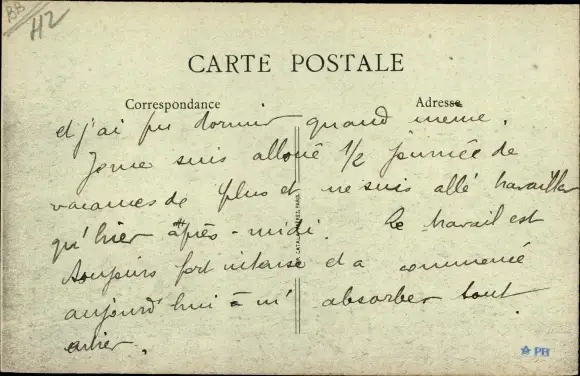 BB
H2
CARTE POSTALE
Correspondance
Adresse
et j'ai pu dormir quand meme.
Je me suis alloué 1/2 journée de
vacances de plus et ne suis allé travailler
qu'hier après-midi. Le travail est
toujours fort intense et a commencé
aujourd'hui à m'absorber tout
entier.
CATALA FRERES, PARIS
PB